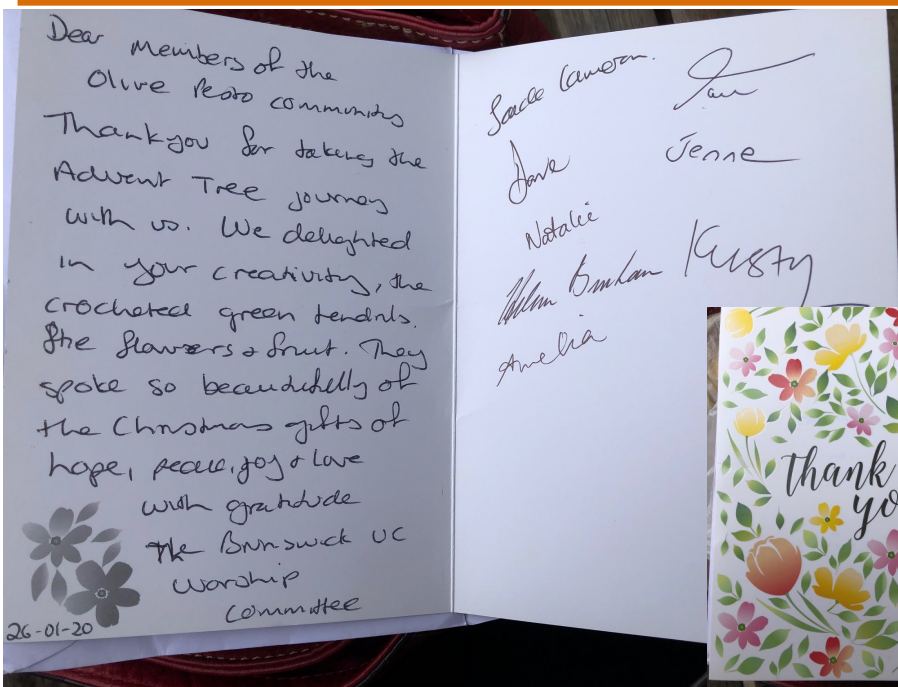 Dear Members of the
Olive community
Thankyou for taking the
Advent Tree journey
with us. We delighted
in your creativity, the
crocheted green tendrils.
the flowers & fruit. They
spoke so beautifully of
the Christmas gifts of
hope, peace, joy & love
with gratitude
The Brunswick UC
Worship
Committee
26-01-20
Cameron.
Dave
Jenne
Natalie
Helen
Kirsty
Amelia
thank
yo